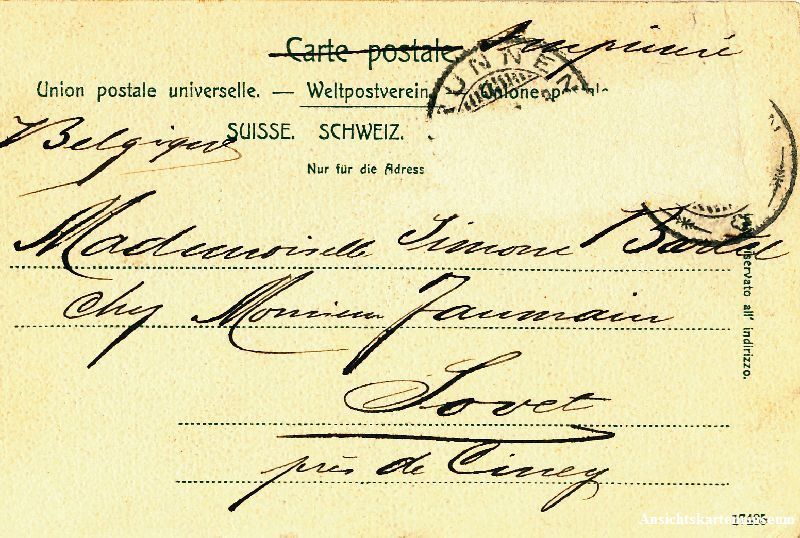 Carte postale Imprimé
Union postale universelle. — Weltpostverein. Unione postale
SUISSE. SCHWEIZ.
Belgique
Nur für die Adress
BRUNNEN
Mademoiselle Simone
chez Monsieur Jaumain
Sovet
près de Ciney
riservato all' indirizzo.
17425
Ansichtskartenmuseum